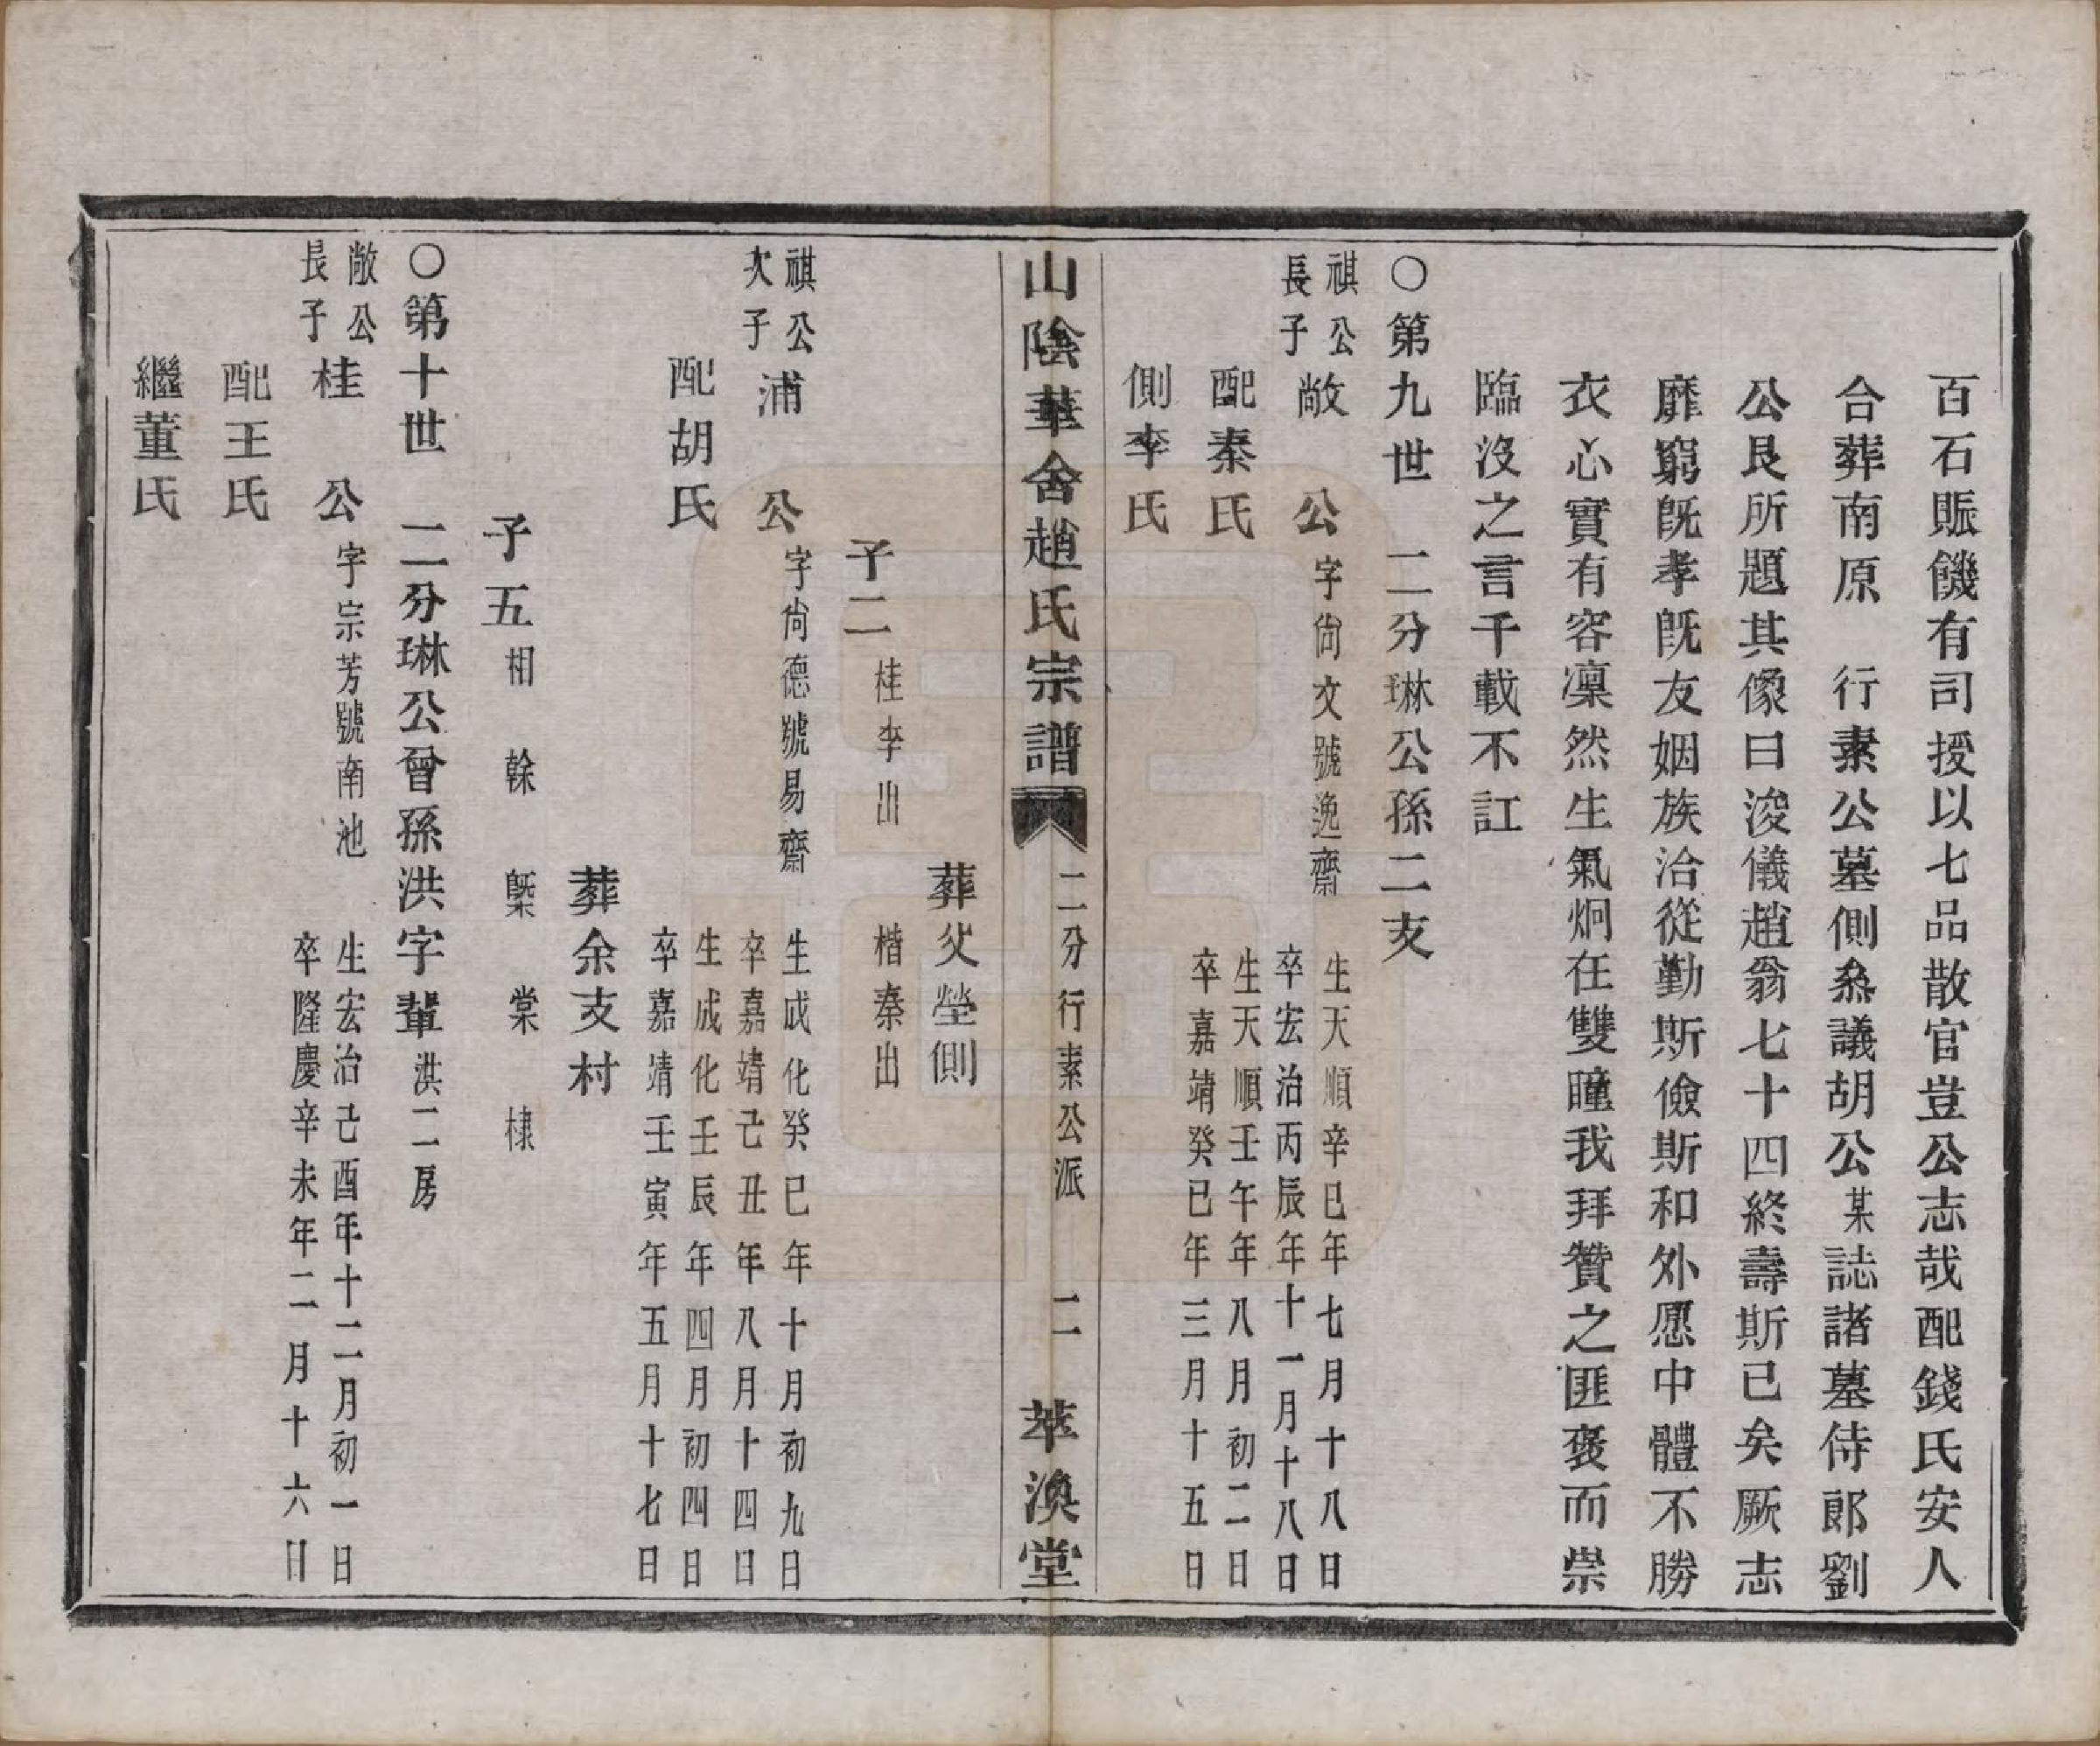 百石賑饑有司授以七品散官豈公志哉配錢氏安人
合葬南原　行素公墓側叅議胡公某誌諸墓侍郎劉
公艮所題其像曰浚儀趙翁七十四終壽斯已矣厥志
靡窮旣孝旣友姻族洽從勤斯儉斯和外愿中體不勝
衣心實有容凜然生氣炯在雙瞳我拜贊之匪褒而崇
臨沒之言千載不訌
〇第九世　二分琳公孫二支
祺公
長子
敞　公
字尙文號逸齋
生天順辛巳年七月十八日
卒宏治丙辰年十一月十八日
配秦氏
生天順壬午年八月初二日
卒嘉靖癸巳年三月十五日
側李氏
山陰華舍趙氏宗譜
二分行素公派　二
萃渙堂
葬父塋側
子二
桂李出　楷秦出
祺公
次子
浦　公
字尙德號易齋
生成化癸巳年十月初九日
卒嘉靖己丑年八月十四日
配胡氏
生成化壬辰年四月初四日
卒嘉靖壬寅年五月十七日
葬余支村
子五
相　榦　槩　棠　棣
〇第十世　二分琳公曾孫洪字輩洪二房
敞公
長子
桂　公
字宗芳號南池
生宏治己酉年十二月初一日
卒隆慶辛未年二月十六日
配王氏
繼董氏